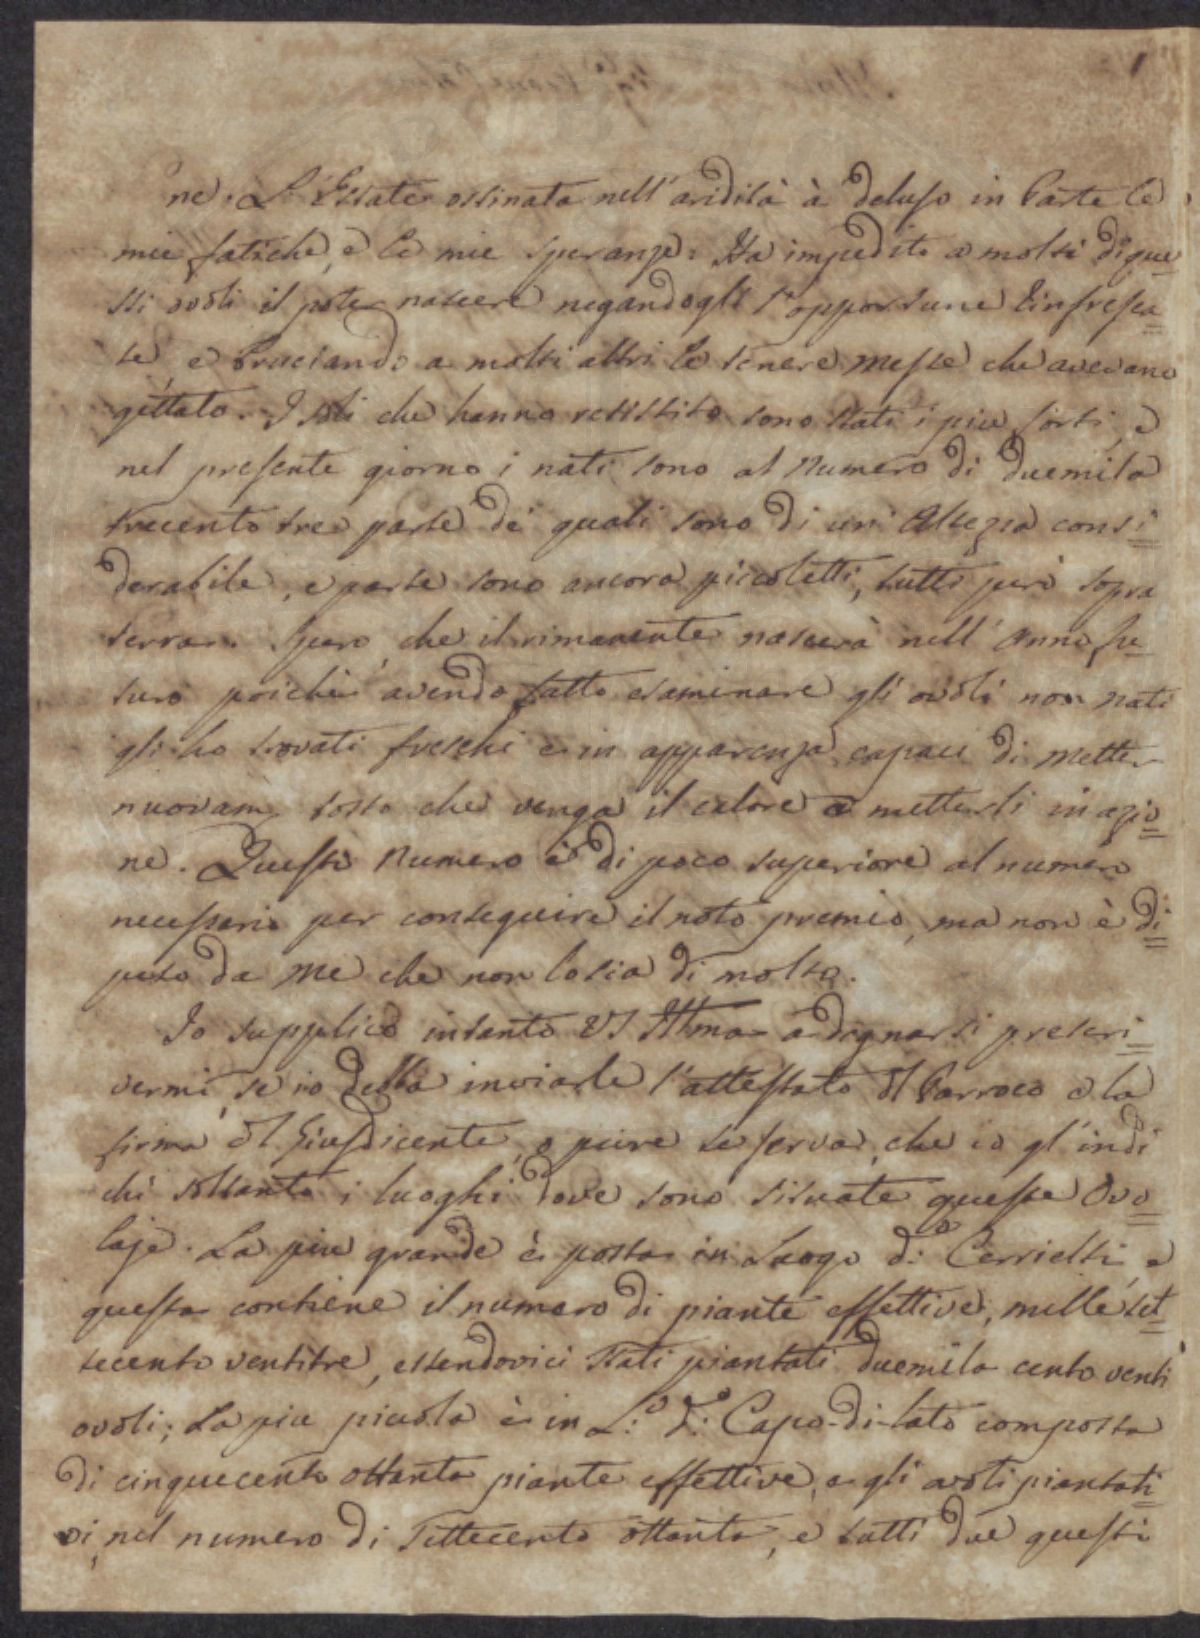 ne. L'Estate ostinata nell'aridità à deluso in Parte le
mie fatiche, e le mie speranze. Ha impedito a molti di que=
sti ovoli il poter nascere negandogli l'opportune Rinfresca=
te e bruciando a molti altri le tenere messe che avevano
gettato. I soli che hanno resistito sono stati i più forti, e
nel presente giorno i nati sono al numero di duemila
trecento tre parte de' quali sono di un'Altezza consi=
derabile, e parte sono ancora piccoletti, tutti però sopra
terra. Spero che il rimanente nascerà nell'anno fu=
turo poichè avendo fatto esaminare gli ovoli non nati
gli ho trovati freschi e in apparenza capaci di metter
nuovam. tosto che venga il calore a metterli in azio=
ne. Questo numero è di poco superiore al numero
necessario per conseguire il noto premio, ma non è di=
peso da me che non lo sia di molto.
Io supplico intanto VS Illma a degnarsi prescri=
vermi, se io debba inviarle l'attestato del Parroco e la
firma del Giusdicente, o pure se serva, che io gl'indi
chi soltanto i luoghi dove sono situate queste Ovo=
laje. La più grande è posta in Luogo do: Cerrielti, e
questa contiene il numero di piante effettive, mille set=
tecento ventitre, essendovici stati piantati duemila cento venti
ovoli; La più piccola è in L:o d:o Capo-di-lato composta
di cinquecento ottanta piante effettive, e gli ovoli piantati=
vi, nel numero di settecento ottanta, e tutti due questi